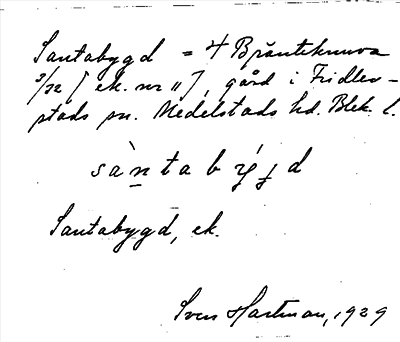 Santabygd = 4 Bränteknuva
3/32 [ ek. nr 11 ], gård i Fridlev-
stads sn. Medelstads hd. Blek. l.
Santabygd, ek.
Sven Hartman, 1929